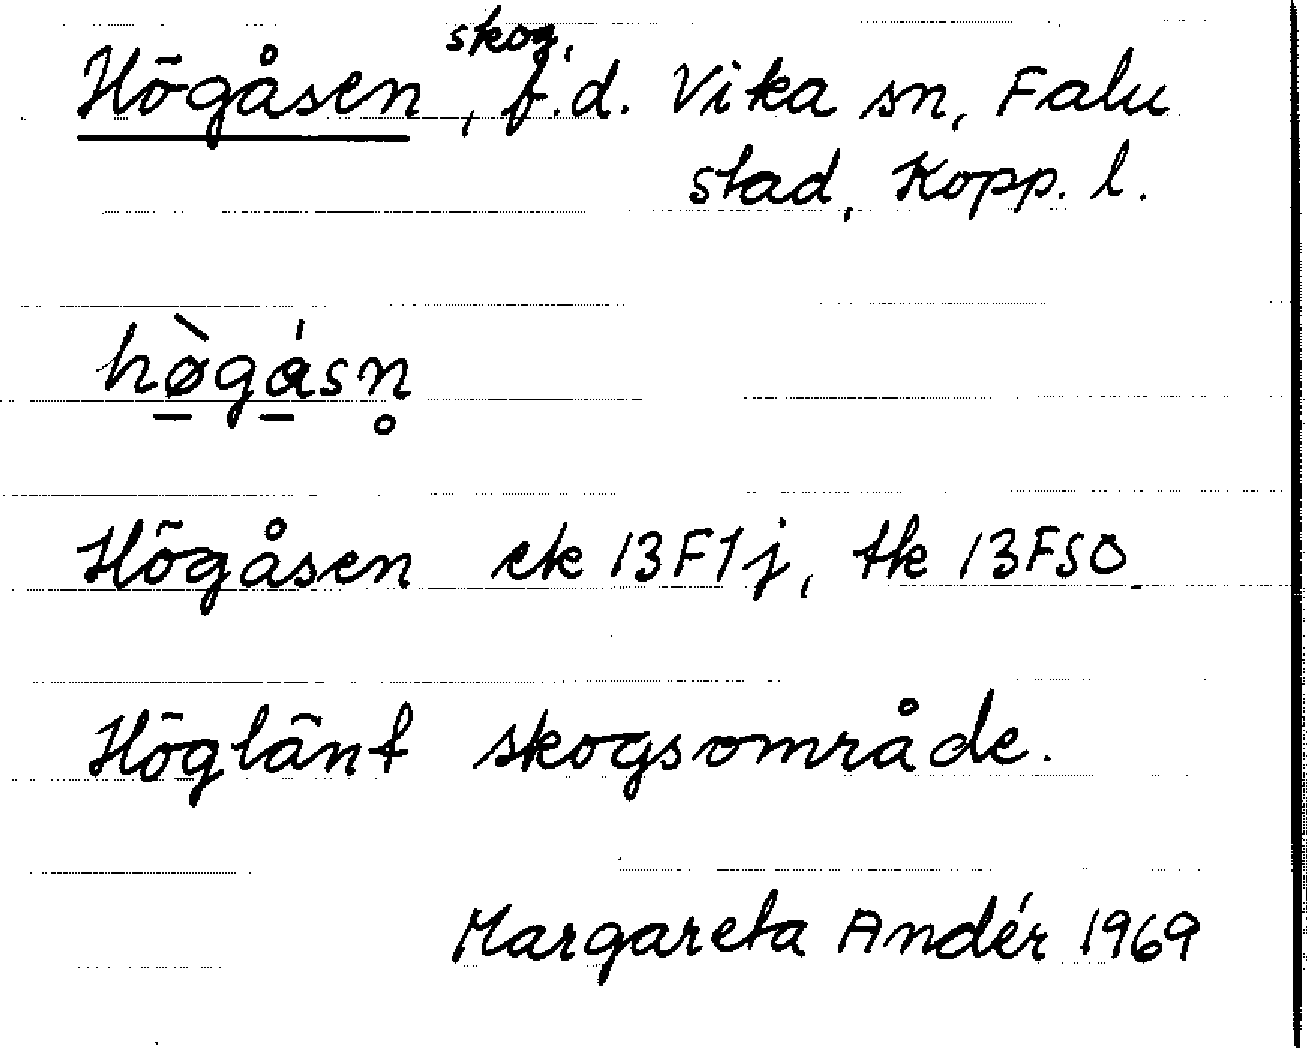 Högåsen, skog, f.d. Vika sn, Falu
stad, Kopp. l.
hø̲̀gá̲sn̥
Högåsen ek 13F1j, tk 13FSO
Höglänt skogsområde.
Margareta Andér 1969